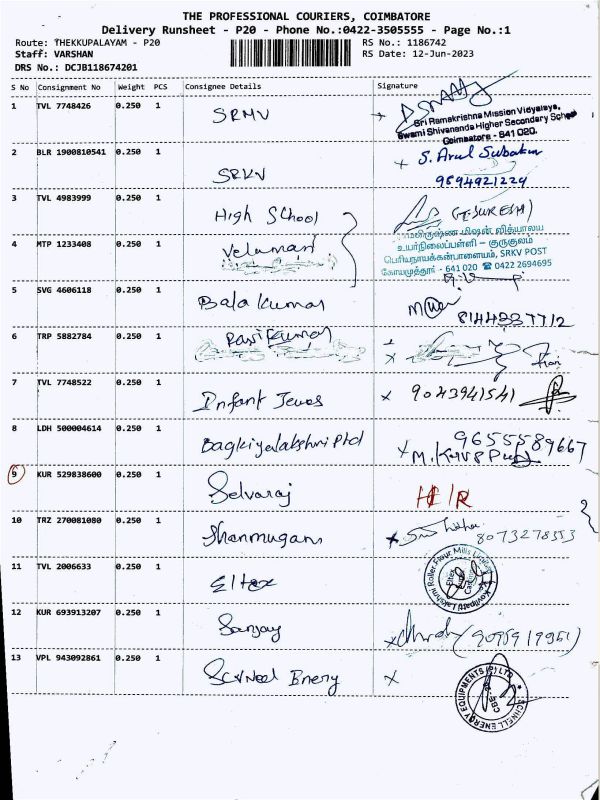 THE PROFESSIONAL COURIERS, COIMBATORE
Delivery Runsheet - P20 - Phone No.:0422-3505555 - Page No.:1
Route: THEKKUPALAYAM - P20
RS No.: 1186742
Staff: VARSHAN
RS Date: 12-Jun-2023
DRS No.: DCJB118674201
S No Consignment No Weight PCS Consignee Details Signature
1 TVL 7748426 0.250 1 SRMV
Sri Ramakrishna Mission Vidyalaya,
Swami Shivananda Higher Secondary School
Coimbatore - 641 020.
2 BLR 1900810541 0.250 1 SRKV
S. Arul
9894921224
3 TVL 4983999 0.250 1 High School
உயர்நிலைப்பள்ளி – குருகுலம்
பெரியநாயக்கன்பாளையம், SRKV POST
கோயமுத்தூர் - 641 020 ☎ 0422 2694695
4 MTP 1233408 0.250 1 Velumani
5 SVG 4606118 0.250 1 Bala Kumar
6 TRP 5882784 0.250 1 Ravi Kumar
7 TVL 7748522 0.250 1 Infant Jewos x 9043941541
8 LDH 500004614 0.250 1
9655589667
9 KUR 529838600 0.250 1 Selvaraj
10 TRZ 270081080 0.250 1 Shanmugam
11 TVL 2006633 0.250 1 Eltex
Kovilpatti Lakshmi Roller Flour Mills Limited
12 KUR 693913207 0.250 1 Sanjay
13 VPL 943092861 0.250 1 x
SCHNELL ENERGY EQUIPMENTS (P) LTD
CBE